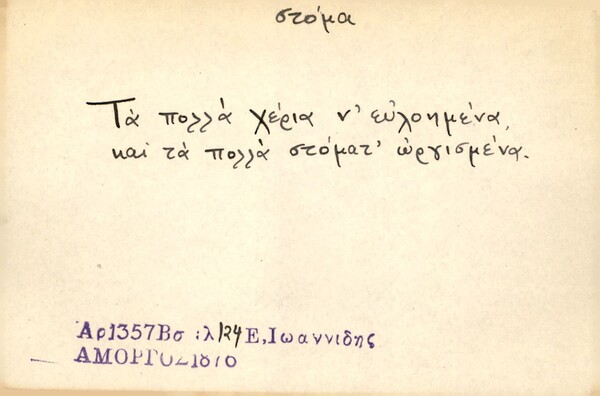 στόμα
Τὰ πολλὰ χέρια ν' εὐλοημένα,
καὶ τὰ πολλὰ στόματ' ὠργισμένα.
Αρ1357Βσελ124 Ε,Ιωαννιδης
ΑΜΟΡΓΟΣ1876